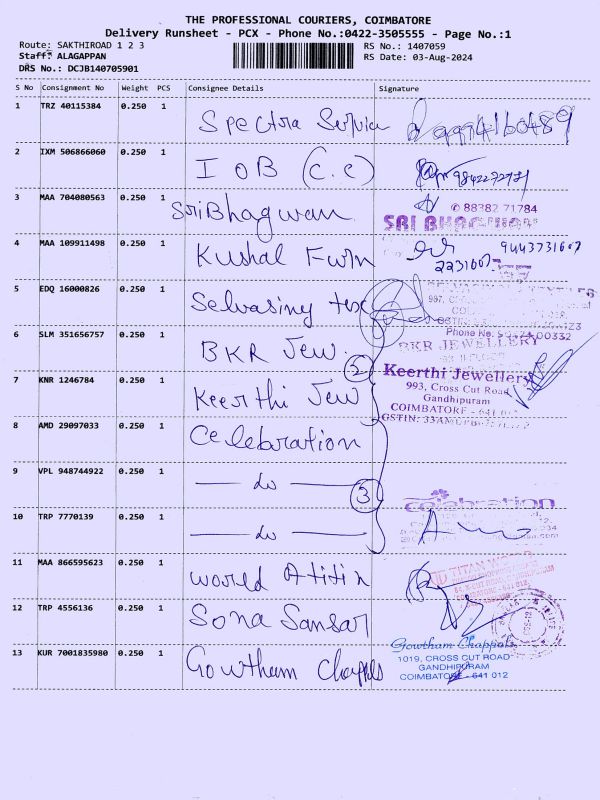 THE PROFESSIONAL COURIERS, COIMBATORE
Delivery Runsheet - PCX - Phone No.:0422-3505555 - Page No.:1
Route: SAKTHIROAD 1 2 3 RS No.: 1407059
Staff: ALAGAPPAN RS Date: 03-Aug-2024
DRS No.: DCJB140705901
S No Consignment No Weight PCS Consignee Details Signature
1 TRZ 40115384 0.250 1 Spectra Service
2 IXM 506866060 0.250 1 IOB (C.C) 9842272781
3 MAA 704080563 0.250 1 Sri Bhagwan ✆ 88382 71784
SRI BHAGWAN
4 MAA 109911498 0.250 1 Kushal Furn 9443731607
2231607
5 EDQ 16000826 0.250 1 Selvasing tex
987,
Phone No.
6 SLM 351656757 0.250 1 BKR Jew. BKR JEWELLERY
2
7 KNR 1246784 0.250 1 Keerthi Jew Keerthi Jewellery
993, Cross Cut Road
Gandhipuram
COIMBATORE - 641 012
GSTIN:
8 AMD 29097033 0.250 1 Celebration
9 VPL 948744922 0.250 1 — do — 3
celebration
10 TRP 7770139 0.250 1 — do —
11 MAA 866595623 0.250 1 World of Titin
TITAN WORLD
12 TRP 4556136 0.250 1 Sona Sansar
13 KUR 7001835980 0.250 1 Gowtham Chappls Gowtham Chappals
1019, CROSS CUT ROAD
GANDHIPURAM
COIMBATORE - 641 012